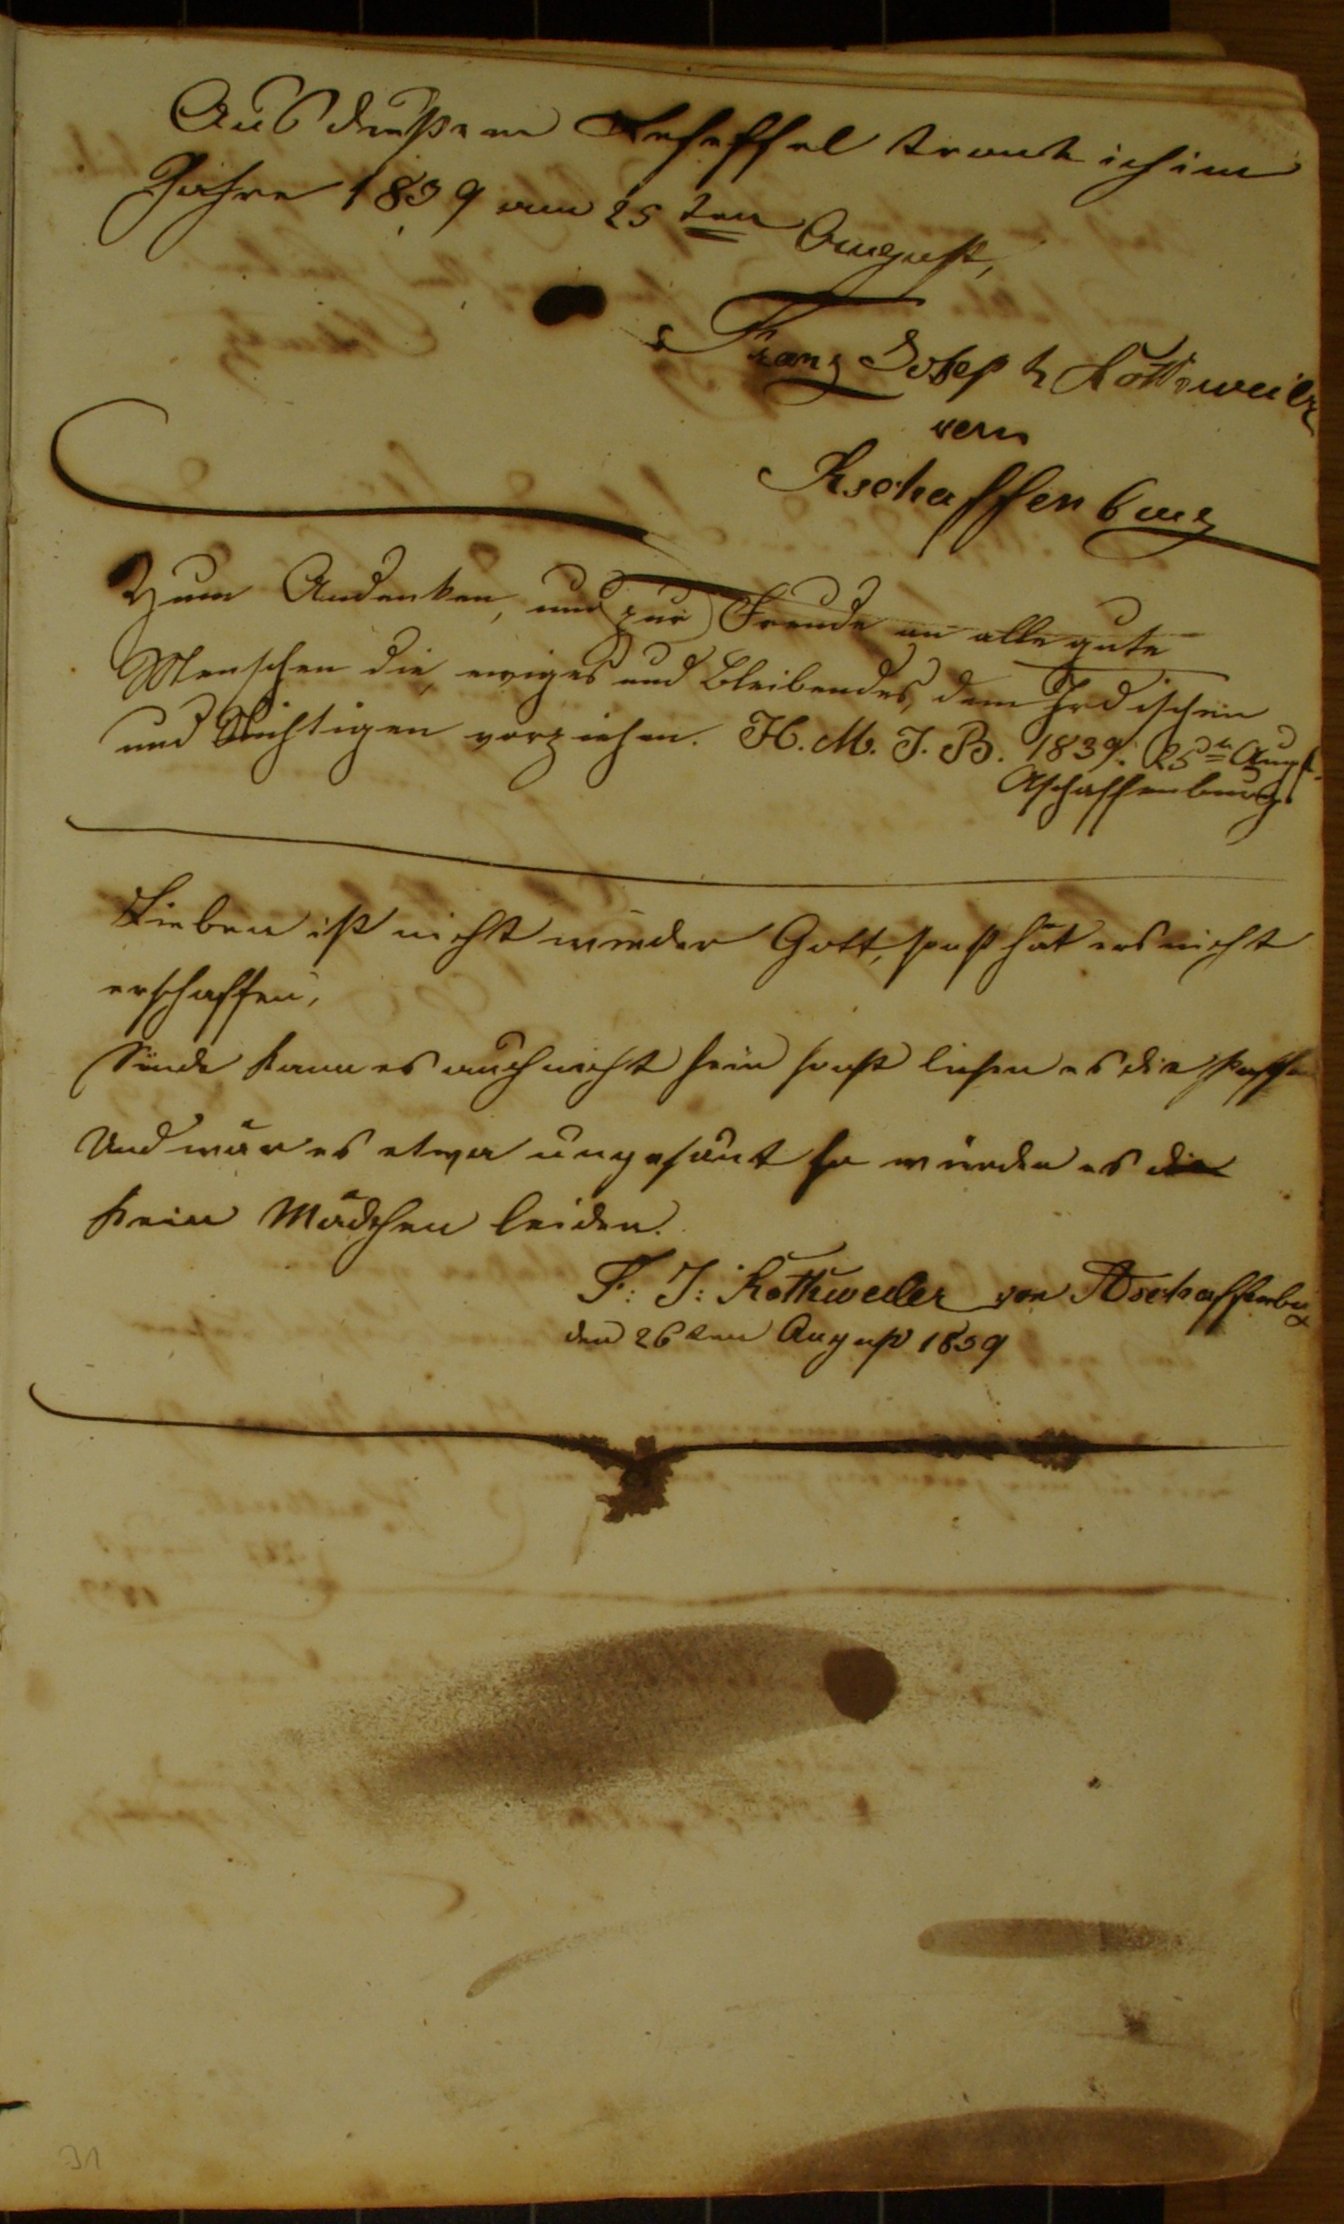 Aus dießem Leseffel trank ich im
Jahre 1839 am 25ten August,
Franz Joseph Kottweiler
von
Aschaffenburg
Zum Andenken, und zur Freude an alle gute
Menschen die, ewiges und bleibendes, dem Irdischen
und Nichtigen vorziehen. H. M. J. B. 1839. 25t Augst.
Aschaffenburg.
Lieben ist nicht wieder Gott, sonst hät ers nicht
erschaffen,
Sünde kann es auch nicht sein sonst liesen es die Pfaffen
Und wär es etwa ungesunt so würden es die
kein Mädchen leiden.
F: J: Kottweiler von Aschaffenburg
den 26ten August 1839
31